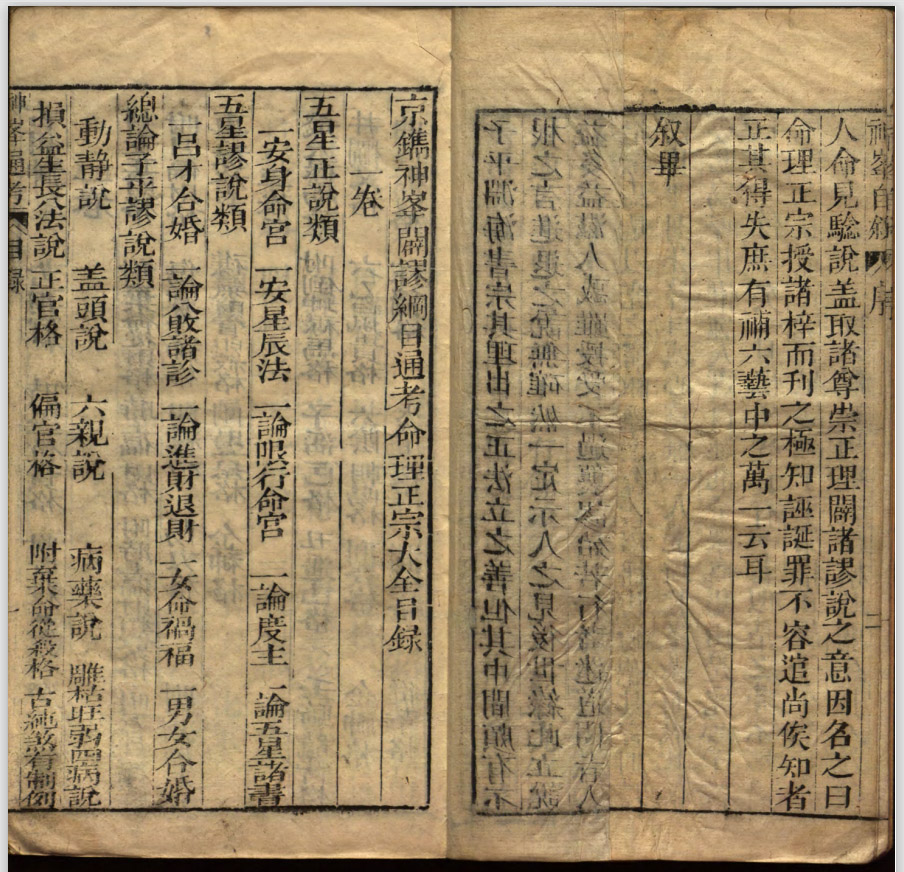 神峯自敘 序 二
人命見驗說盖取諸尊崇正理闢諸謬說之意因名之曰
命理正宗授諸梓而刊之極知誣誕罪不容逭尚俟知者
正其得失庶有補六藝中之萬一云耳
叙畢
京鐫神峯闢謬綱目通考命理正宗大全目録
一卷
五星正說類
一安身命宮 一安星辰法 一論限行命宮 一論度主 一論五星諸書
五星謬說類
一呂才合婚 一論八敗諸診 一論進財退財 一女命禍福 一男女合婚
總論子平謬說類
動靜說 盖頭說 六親說 病藥說 雕枯旺弱四病說
損益生長八法說 正官格 偏官格 附棄命從殺格 古純煞有制例
神峯通考 目録 一